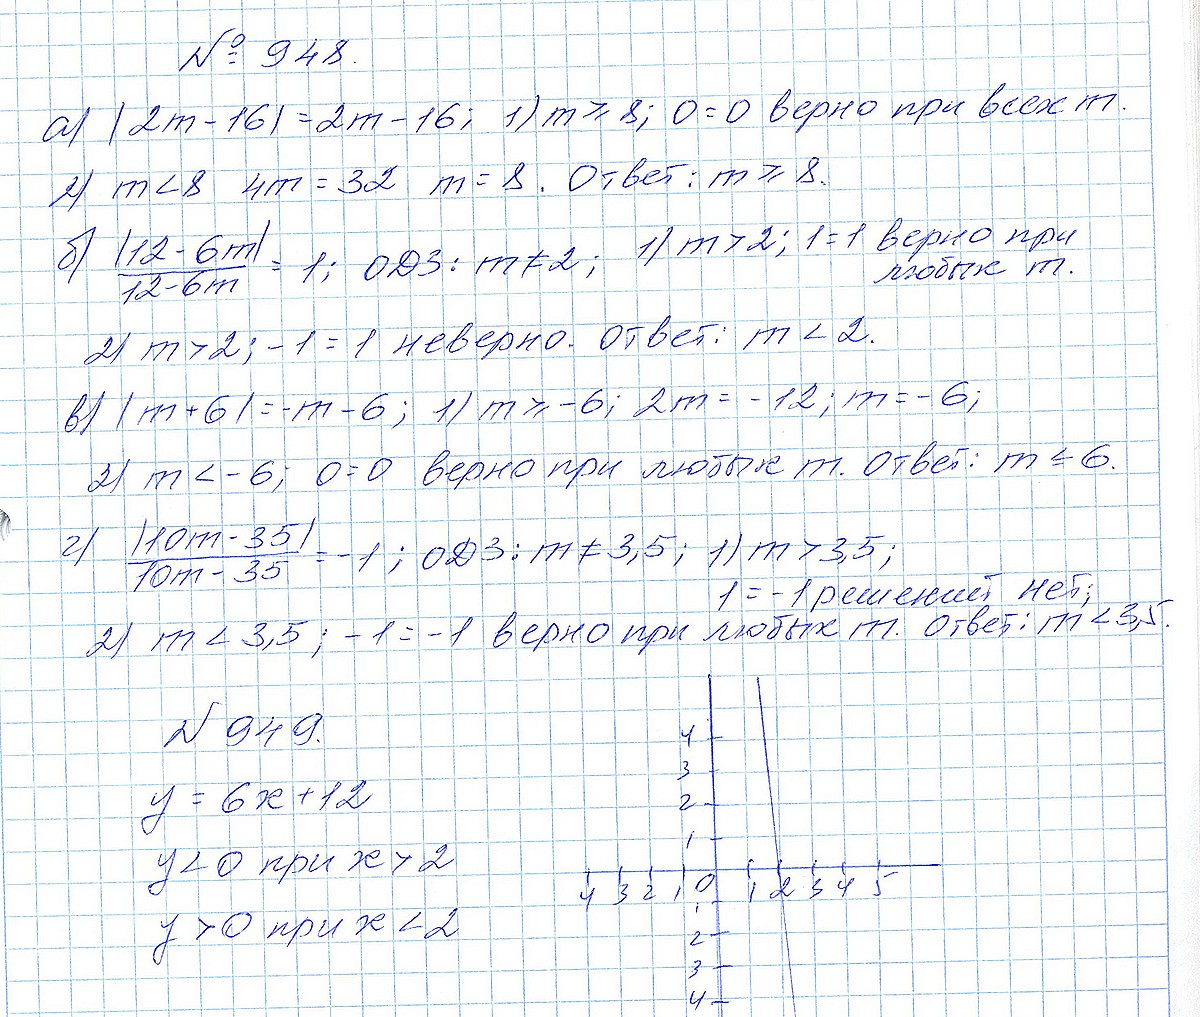 № 948.
а) |2m-16|=2m-16; 1) m ≥ 8; 0=0 верно при всех m.
2) m<8 4m=32 m=8. Ответ: m ≥ 8.
б) |12-6m|/12-6m = 1; ОДЗ: m≠2; 1) m>2; 1=1 верно при
любых m.
2) m>2; -1=1 неверно. Ответ: m<2.
в) |m+6|=-m-6; 1) m ≥ -6; 2m=-12; m=-6;
2) m<-6; 0=0 верно при любых m. Ответ: m ≤ 6.
г) |10m-35|/10m-35 = -1; ОДЗ: m≠3,5; 1) m>3,5;
1=-1 решений нет;
2) m<3,5; -1=-1 верно при любых m. Ответ: m<3,5.
N 949.
y = 6x+12
y<0 при x>2
y>0 при x<2
4
3
2
1
4 3 2 1 0 1 2 3 4 5
1
2
3
4